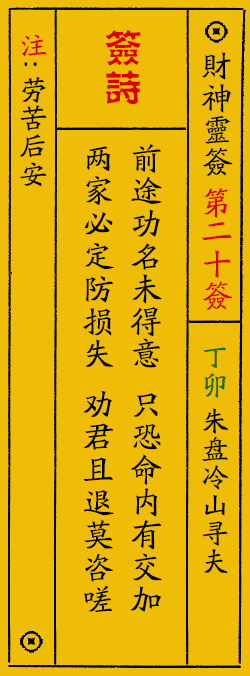 財神靈簽 第二十簽
丁卯 朱盘冷山寻夫
簽詩
前途功名未得意 只恐命内有交加
两家必定防损失 劝君且退莫咨嗟
注：劳苦后安